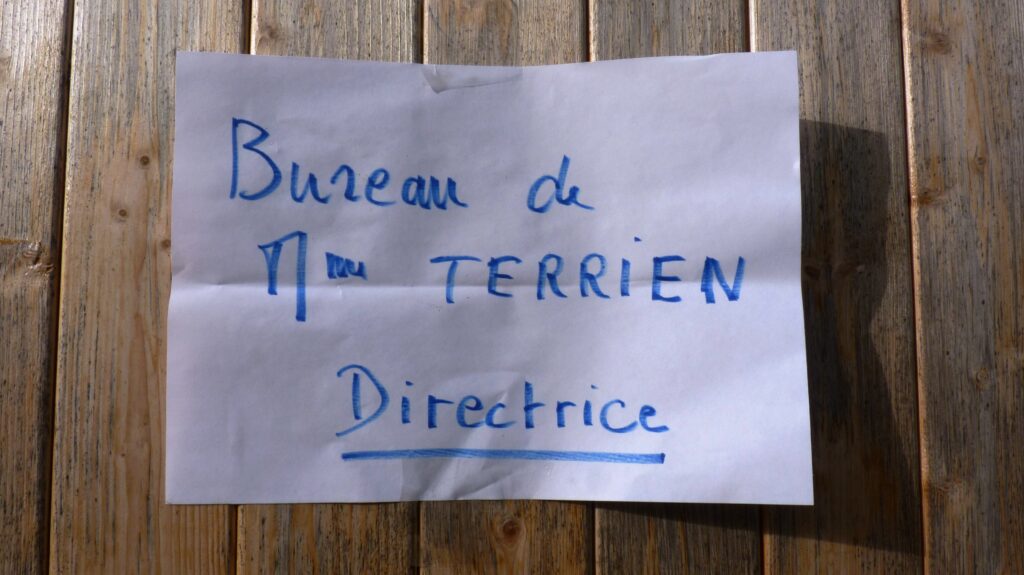 Bureau de
Mme TERRIEN
Directrice